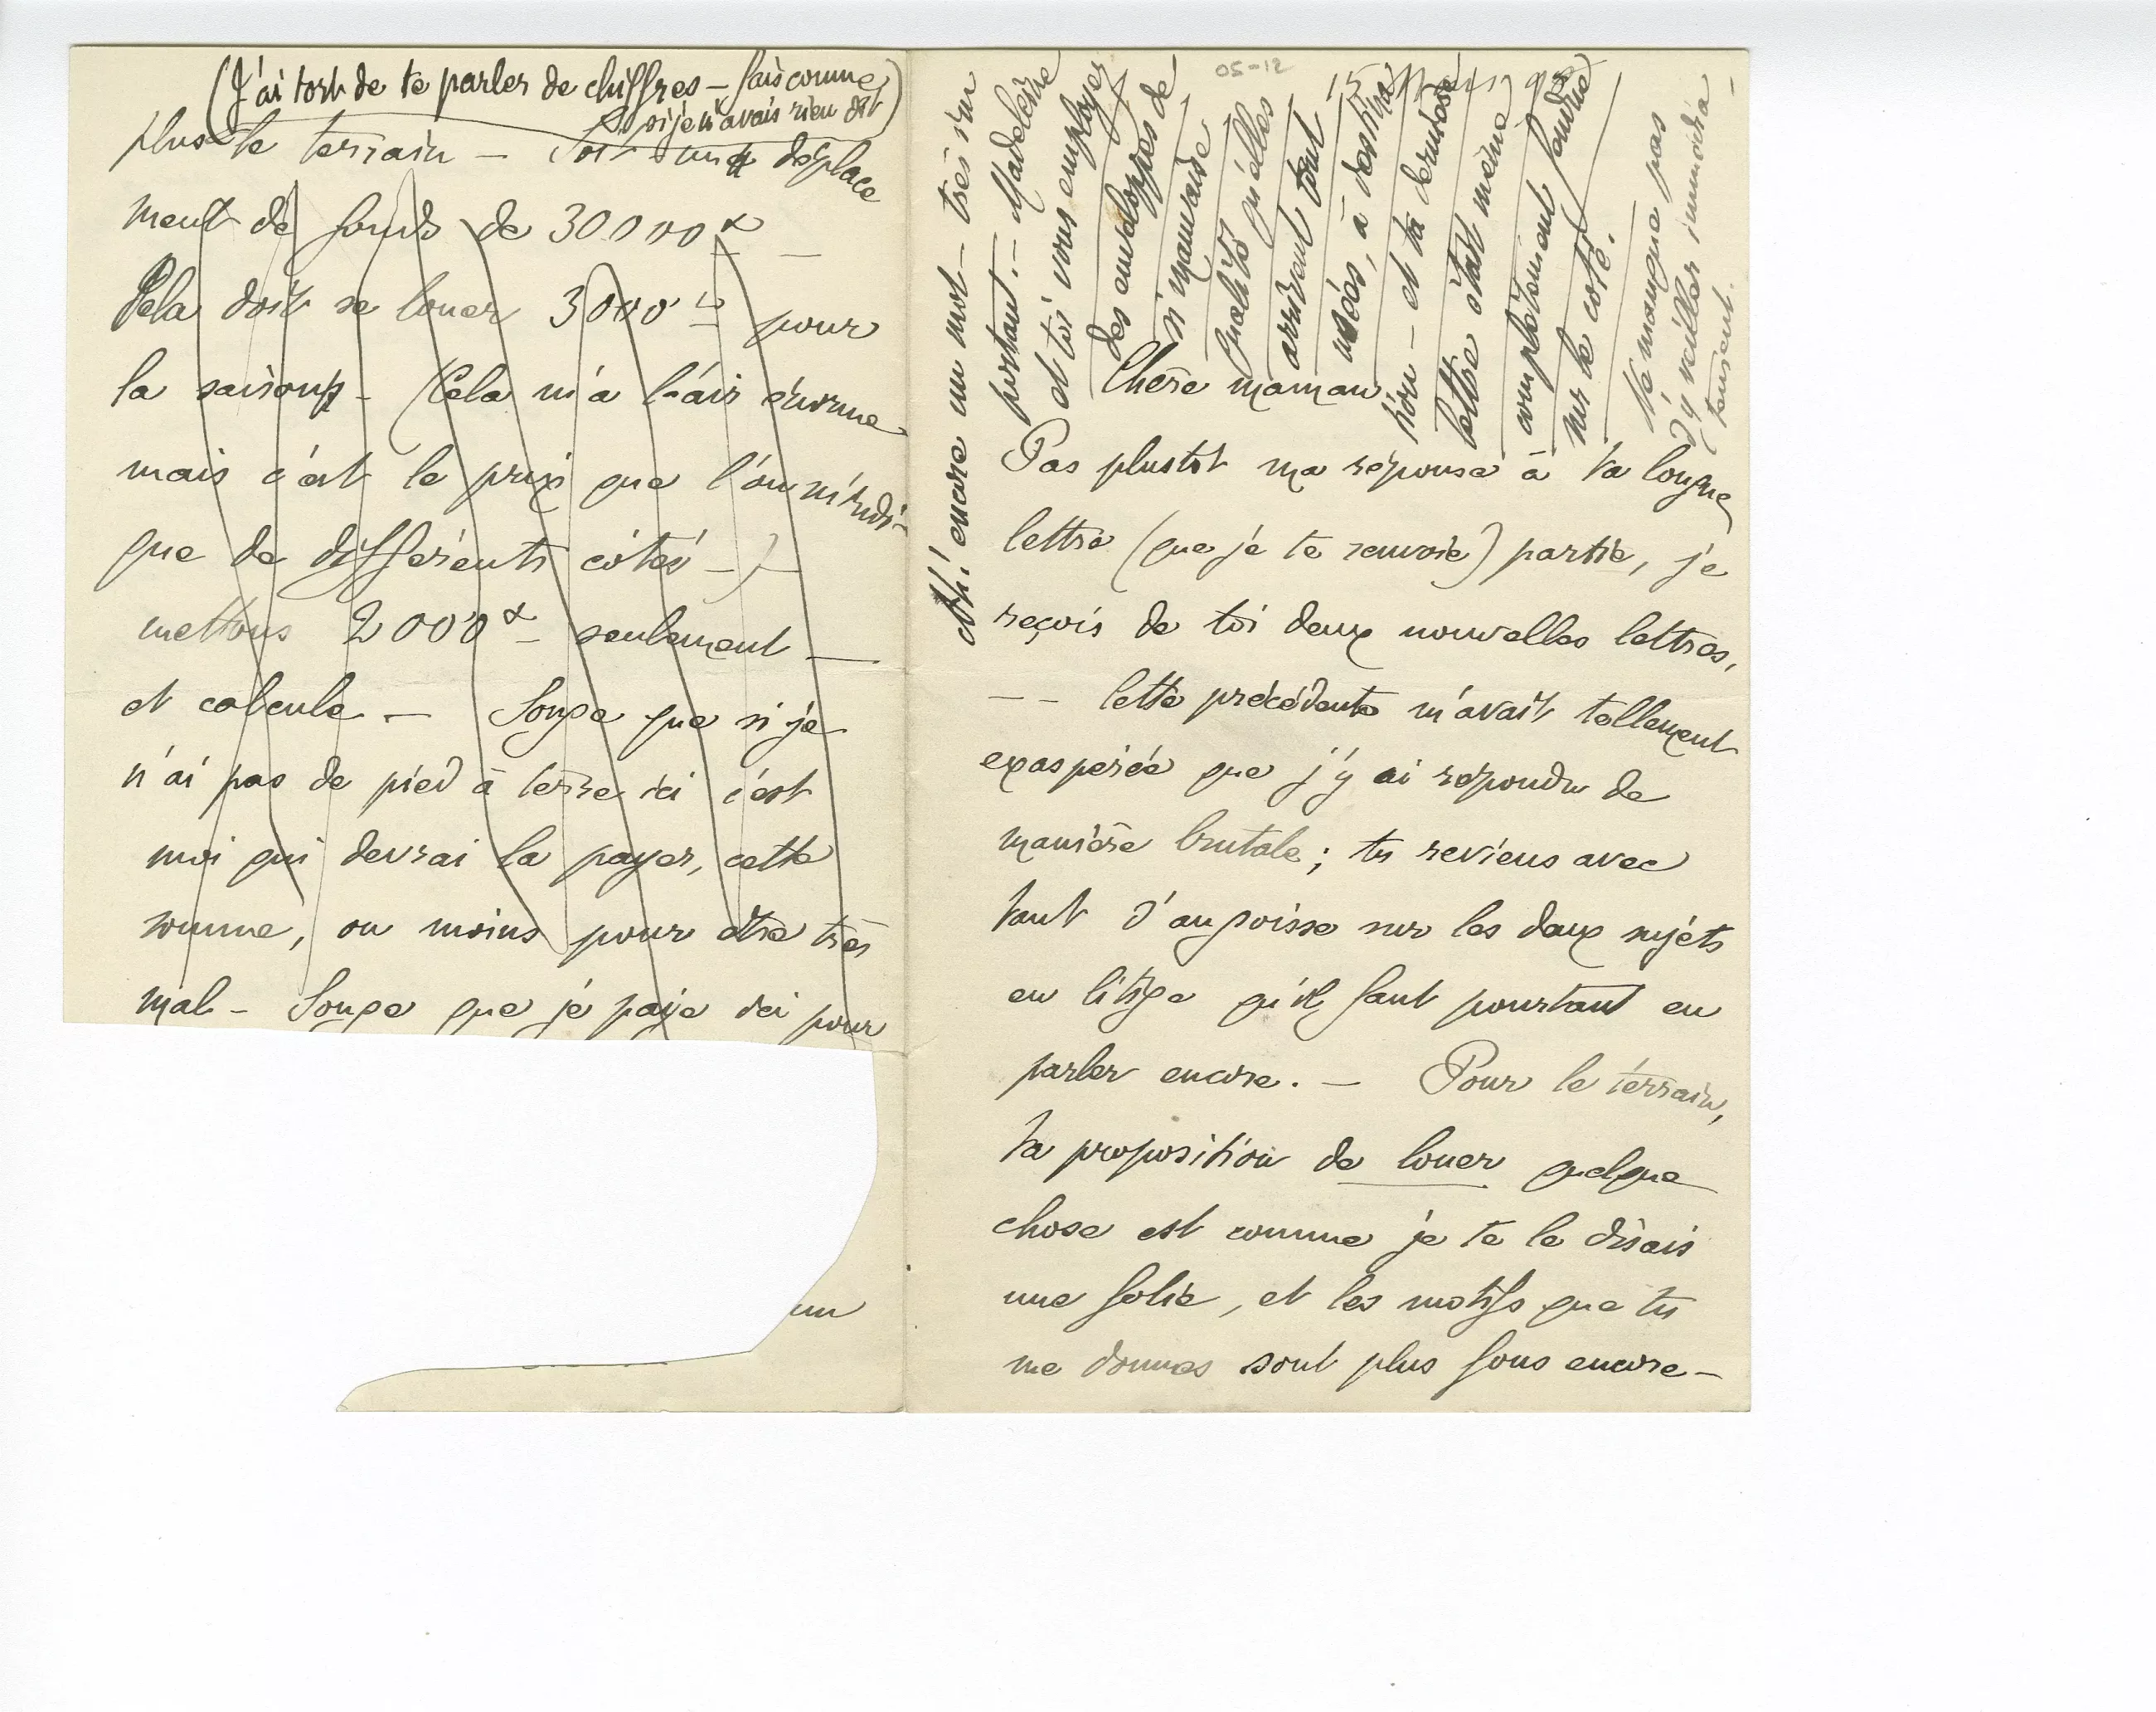 (J'ai tort de te parler de chiffres – fais comme
si je n'avais rien dit)
plus le terrain – Soit un déplace
ment de fonds de 30000 –
Cela doit se louer 3000 pour
la saison – (Cela m'a l'air énorme
mais c'est le prix que l'on m'indi-
que de différents côtés –)
mettons 2000 – seulement –
et calcule – Songe que si je
n'ai pas de pied à terre ici c'est
moi qui devrai la payer, cette
somme, ou moins pour être très
mal – Songe que je paye ici pour
un
05-12
15
Ah! encore un mot – très im
portant. – Madeleine
et toi vous employez
des enveloppes de
si mauvaise
qualité qu'elles
arrivent tout
usées, à destina
tion – et ta dernière
lettre était même
complètement fendue
sur le coté.
Ne manque pas
d'y veiller immédia-
tement.
Chère maman
Pas plustôt ma réponse à ta longue
lettre (que je te renvoie) partie, je
reçois de toi deux nouvelles lettres,
– Cette précédente m'avait tellement
exaspérée que j'y ai répondu de
manière brutale ; tu reviens avec
tant d'angoisse sur les deux sujets
en litige qu'il faut pourtant en
parler encore. – Pour le terrain,
ta proposition de louer quelque
chose est comme je te le disais
une folie, et les motifs que tu
me donnes sont plus fous encore –